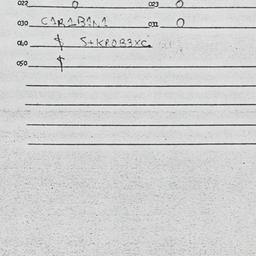 022 0 023 0
030 C1R1B1N1 031 0
040 $ S+KPOB3XC
050 $